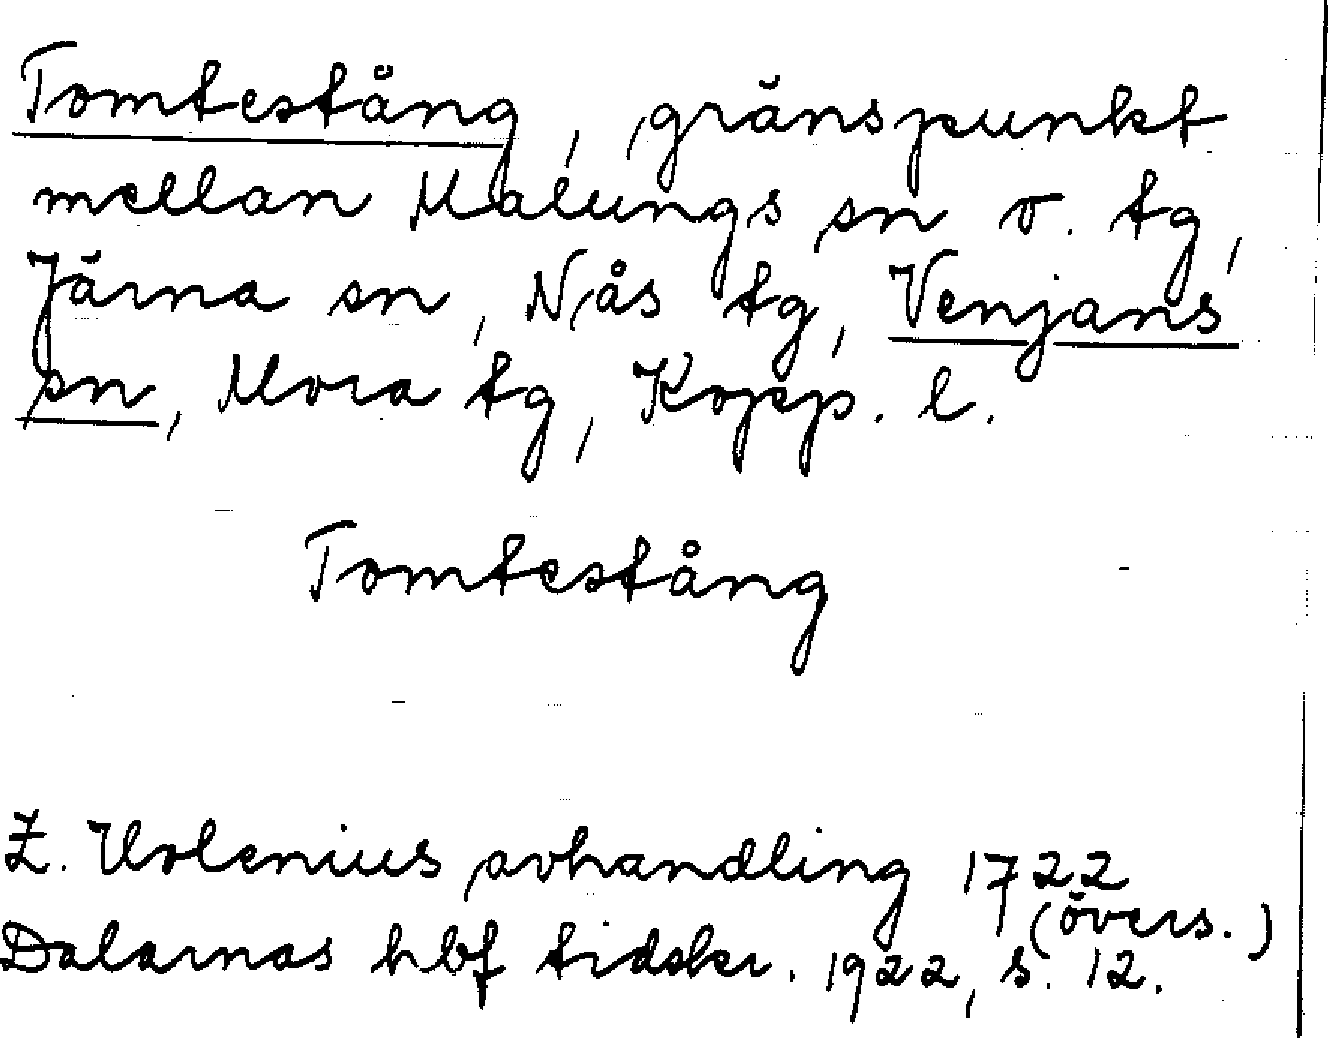 Tomtestång, gränspunkt
mellan Malungs sn o. tg,
Järna sn, Nås tg, Venjans
sn, Mora tg, Kopp. l.
Tomtestång
Z. Holenius avhandling 1722
(övers.)
Dalarnas hbf tidskr. 1922, s. 12.